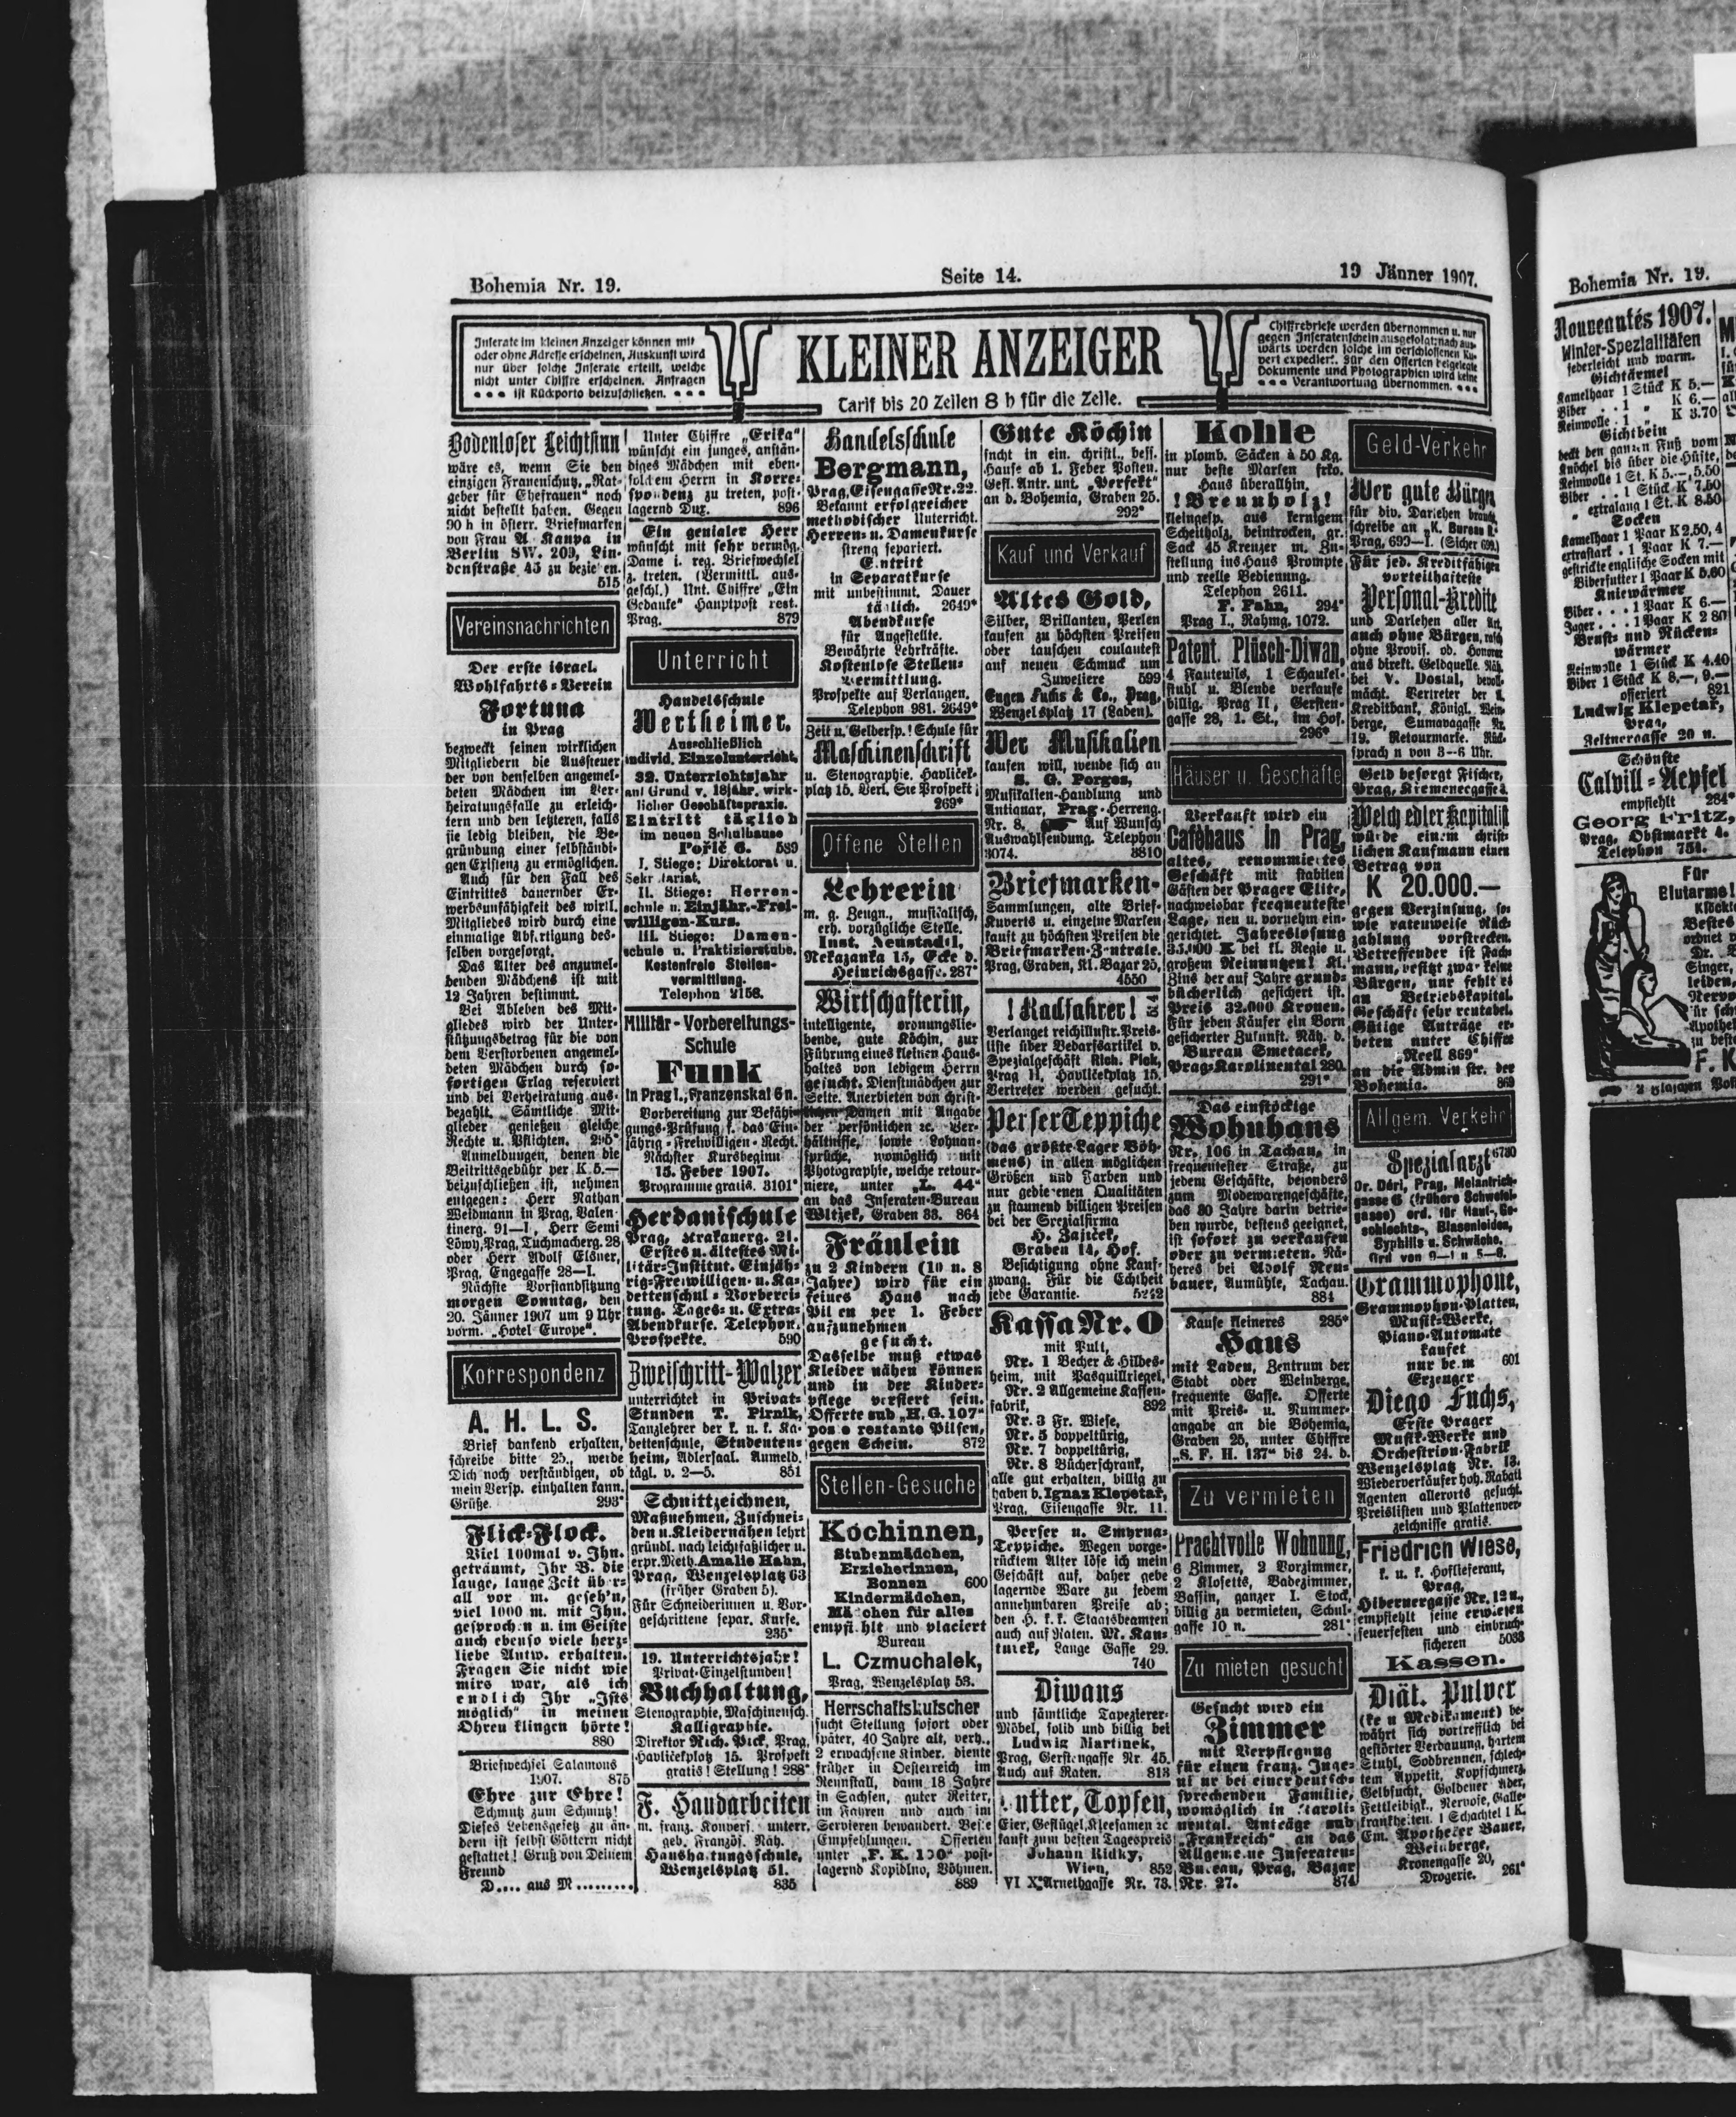 Bohemia Nr. 19.
Seite 14.
19 Jänner 1907.
Inserate im kleinen Anzeiger können mit
oder ohne Adresse erscheinen, Auskunft wird
nur über solche Inserate erteilt, welche
nicht unter Chiffre erscheinen. Anfragen
ist Rückporto beizuschließen.
KLEINER ANZEIGER
Tarif bis 20 Zeilen 8 h für die Zeile.
Chiffrebriefe werden übernommen u. nur
gegen Inseratenschein ausgefolgt; nach aus-
wärts werden solche im verschlossenen Ku-
vert expediert. Für den Offerten beigelegte
Dokumente und Photographien wird keine
Verantwortung übernommen.
Bodenloser Leichtsinn
wäre es, wenn Sie den
einzigen Frauenschutz, „Rat-
geber für Ehefrauen“ noch
nicht bestellt haben. Gegen
90 h in österr. Briefmarken
von Frau A. Kaupa in
Berlin SW. 209, Lin-
denstraße 45 zu bezie en.
515
Vereinsnachrichten
Der erste israel.
Wohlfahrts-Verein
Fortuna
in Prag
bezweckt seinen wirklichen
Mitgliedern die Aussteuer
der von denselben angemel-
deten Mädchen im Ver-
heiratungsfalle zu erleich-
tern und den letzteren, falls
sie ledig bleiben, die Be-
gründung einer selbständi-
gen Existenz zu ermöglichen.
Auch für den Fall des
Eintrittes dauernder Er-
werbsunfähigkeit des wirkl.
Mitgliedes wird durch eine
einmalige Abfertigung des-
selben vorgesorgt.
Das Alter des anzumel-
denden Mädchens ist mit
12 Jahren bestimmt.
Bei Ableben des Mit-
gliedes wird der Unter-
stützungsbetrag für die von
dem Verstorbenen angemel-
deten Mädchen durch so-
fortigen Erlag reserviert
und bei Verheiratung aus-
bezahlt. Sämtliche Mit-
glieder genießen gleiche
Rechte u. Pflichten. 295*
Anmeldungen, denen die
Beitrittsgebühr per K 5.—
beizuschließen ist, nehmen
entgegen: Herr Nathan
Weidmann in Prag, Valen-
tinerg. 91—I, Herr Semi
Löwy, Prag, Tuchmacherg. 28
oder Herr Adolf Elsner,
Prag, Engegasse 28—I.
Nächste Vorstandsitzung
morgen Sonntag, den
20. Jänner 1907 um 9 Uhr
vorm. „Hotel Europe“.
Korrespondenz
A. H. L. S.
Brief dankend erhalten,
schreibe bitte 25., werde
Dich noch verständigen, ob
mein Versp. einhalten kann.
Grüße. 293*
Flick-Flock.
Viel 100mal v. Ihn.
geträumt, Ihr B. die
lange, lange Zeit über-
all vor m. geseh'n,
viel 1000 m. mit Ihn.
gesproch n u. im Geiste
auch ebenso viele herz-
liebe Antw. erhalten.
Fragen Sie nicht wie
mirs war, als ich
endlich Ihr „Ists
möglich“ in meinen
Ohren klingen hörte!
880
Briefwechsel Salamons
1907. 875
Ehre zur Ehre!
Schmutz zum Schmutz!
Dieses Lebensgesetz zu än-
dern ist selbst Göttern nicht
gestattet! Gruß von Deinem
Freund
D.... aus M.........
Unter Chiffre „Erika“
wünscht ein junges, anstän-
diges Mädchen mit eben-
solchem Herrn in Korre-
spondenz zu treten, post-
lagernd Dux. 896
Ein genialer Herr
wünscht mit sehr vermög.
Dame i. reg. Briefwechsel
z. treten. (Vermittl. aus-
geschl.) Unt. Chiffre „Ein
Gedanke“ Hauptpost rest.
Prag. 879
Unterricht
Handelsschule
Wertheimer.
Ausschließlich
individ. Einzelunterricht.
32. Unterrichtsjahr
auf Grund v. 18jähr. wirk-
licher Geschäftspraxis.
Eintritt täglich
im neuen Schulhause
Pořič 6. 589
I. Stiege: Direktorat u.
Sekretariat.
II. Stiege: Herren-
schule u. Einjähr.-Frei-
willigen-Kurs.
III. Stiege: Damen-
schule u. Praktizierstube.
Kostenfreie Stellen-
vermittlung.
Telephon 2156.
Militär-Vorbereitungs-
Schule
Funk
in Prag I., Franzenskai 6 n.
Vorbereitung zur Befähi-
gungs-Prüfung f. das Ein-
jährig-Freiwilligen-Recht.
Nächster Kursbeginn
15. Feber 1907.
Programme gratis. 3101*
Herdanischule
Prag, Krakauerg. 21.
Erstes u. ältestes Mi-
litär-Institut. Einjäh-
rig-Freiwilligen- u. Ka-
dettenschul-Vorberei-
tung. Tages- u. Extra-
Abendkurse. Telephon.
Prospekte. 590
Zweischritt-Walzer
unterrichtet in Privat-
Stunden T. Pirnik,
Tanzlehrer der k. u. k. Ka-
dettenschule, Studenten-
heim, Adlersaal. Anmeld.
tägl. v. 2—5. 851
Schnittzeichnen,
Maßnehmen, Zuschnei-
den u. Kleidernähen lehrt
gründl. nach leichtfaßlicher u.
erpr. Meth. Amalie Hahn,
Prag, Wenzelsplatz 63
(früher Graben 5).
Für Schneiderinnen u. Vor-
geschrittene separ. Kurse.
235*
19. Unterrichtsjahr!
Privat-Einzelstunden!
Buchhaltung,
Stenographie, Maschinensch.
Kalligraphie.
Direktor Rich. Pick, Prag,
Havličekplatz 15. Prospekt
gratis! Stellung! 288*
F. Handarbeiten
m. franz. Konvers. unterr.
geb. Französ. Näh.
Haushaltungsschule,
Wenzelsplatz 51.
835
Handelsschule
Bergmann,
Prag, Eisengasse Nr. 22.
Bekannt erfolgreicher
methodischer Unterricht.
Herren- u. Damenkurse
streng separiert.
Eintritt
in Separatkurse
mit unbestimmt. Dauer
täglich. 2649*
Abendkurse
für Angestellte.
Bewährte Lehrkräfte.
Kostenlose Stellen-
vermittlung.
Prospekte auf Verlangen.
Telephon 981. 2649*
Zeit u. Gelderp.! Schule für
Maschinenschrift
u. Stenographie. Havliček-
platz 15. Verl. Sie Prospekt!
269*
Offene Stellen
Lehrerin
m. g. Zeugn., musikalisch,
erh. vorzügliche Stelle.
Inst. Neustadtl,
Nekazanka 15, Ecke d.
Heinrichsgasse. 287*
Wirtschafterin,
intelligente, ordnungslie-
bende, gute Köchin, zur
Führung eines kleinen Haus-
haltes von ledigem Herrn
gesucht. Dienstmädchen zur
Seite. Anerbieten von christ-
lichen Damen mit Angabe
der persönlichen ec. Ver-
hältnisse, sowie Lohnan-
sprüche, womöglich mit
Photographie, welche retour-
niere, unter „L. 44“
an das Inseraten-Bureau
Witzek, Graben 33. 864
Fräulein
zu 2 Kindern (10 u. 8
Jahre) wird für ein
feines Haus nach
Pilsen per 1. Feber
aufzunehmen
gesucht.
Dasselbe muß etwas
Kleider nähen können
und in der Kinder-
pflege versiert sein.
Offerte sub „H. G. 107“
poste restante Pilsen,
gegen Schein. 872
Stellen-Gesuche
Köchinnen,
Stubenmädchen,
Erzieherinnen,
Bonnen 600
Kindermädchen,
Mädchen für alles
empfiehlt und placiert
Bureau
L. Czmuchalek,
Prag, Wenzelsplatz 53.
Herrschaftskutscher
sucht Stellung sofort oder
später, 40 Jahre alt, verh.,
2 erwachsene Kinder, diente
früher in Oesterreich im
Rennstall, dann 18 Jahre
in Sachsen, guter Reiter,
im Fahren und auch im
Servieren bewandert. Beste
Empfehlungen. Offerten
unter „F. K. 100“ post-
lagernd Kopidlno, Böhmen.
889
Gute Köchin
sucht in ein. christl., bess.
Hause ab 1. Feber Posten.
Gefl. Antr. unt. „Perfekt“
an d. Bohemia, Graben 25.
292*
Kauf und Verkauf
Altes Gold,
Silber, Brillanten, Perlen
kaufen zu höchsten Preisen
oder tauschen coulantest
auf neuen Schmuck um
Juweliere 599
Eugen Fuchs & Co., Prag,
Wenzelsplatz 17 (Laden).
Wer Musikalien
kaufen will, wende sich an
S. G. Porges,
Musikalien-Handlung und
Antiquar, Prag-Herreng.
Nr. 8. Auf Wunsch
Auswahlsendung. Telephon
3074. 3810
Briefmarken-
Sammlungen, alte Brief-
Kuverts u. einzelne Marken
kauft zu höchsten Preisen die
Briefmarken-Zentrale,
Prag, Graben, Kl. Bazar 25.
4550
! Radfahrer!
Verlanget reichillustr. Preis-
liste über Bedarfsartikel v.
Spezialgeschäft Rich. Pick,
Prag II, Havličekplatz 15.
Vertreter werden gesucht.
Perser Teppiche
(das größte Lager Böh-
mens) in allen möglichen
Größen und Farben und
nur gediegenen Qualitäten
zu staunend billigen Preisen
bei der Spezialfirma
H. Zajiček,
Graben 14, Hof.
Besichtigung ohne Kauf-
zwang. Für die Echtheit
jede Garantie. 5242
Kassa Nr. 0
mit Pult,
Nr. 1 Becher & Hildes-
heim, mit Pasquillriegel,
Nr. 2 Allgemeine Kassen-
fabrik, 892
Nr. 3 Fr. Wiese,
Nr. 5 doppeltürig,
Nr. 7 doppeltürig,
Nr. 8 Bücherschrank,
alle gut erhalten, billig zu
haben b. Ignaz Klepetař,
Prag, Eisengasse Nr. 11.
Perser u. Smyrna-
Teppiche. Wegen vorge-
rücktem Alter löse ich mein
Geschäft auf, daher gebe
lagernde Ware zu jedem
annehmbaren Preise ab;
den H. k. k. Staatsbeamten
auch auf Raten. M. Kan-
turek, Lange Gasse 29.
740
Diwans
und sämtliche Tapezierer-
Möbel, solid und billig bei
Ludwig Martinek,
Prag, Gerstengasse Nr. 45.
Auch auf Raten. 813
utter, Topfen,
Eier, Geflügel, Kleesamen ec
kauft zum besten Tagespreis
Johann Ridky,
Wien, 852
VI X Arnethgasse Nr. 73.
Kohle
in plomb. Säcken à 50 Kg.
nur beste Marken frko.
Haus überallhin.
! Brennholz!
kleingesp. aus kernigem
Scheitholz, beintrocken, gr.
Sack 45 Kreuzer m. Zu-
stellung ins Haus Prompte
und reelle Bedienung.
Telephon 2611.
F. Pahn, 294*
Prag I., Rahmg. 1072.
Patent. Plüsch-Diwan,
4 Fauteuils, 1 Schaukel-
stuhl u. Blende verkaufe
billig. Prag II, Gersten-
gasse 28, 1. St., im Hof.
296*
Häuser u. Geschäfte
Verkauft wird ein
Caféhaus in Prag,
altes, renommiertes
Geschäft mit stabilen
Gästen der Prager Elite,
nachweisbar frequenteste
Lage, neu u. vornehm ein-
gerichtet. Jahreslosung
35.000 K bei kl. Regie u.
großem Reinnutzen! Kl.
Zins der auf Jahre grund-
bücherlich gesichert ist.
Preis 32.000 Kronen.
Für jeden Käufer ein Born
gesicherter Zukunft. Näh. d.
Bureau Smetacek,
Prag-Karolinental 280.
291*
Das einstöckige
Wohnhaus
Nr. 106 in Tachau, in
frequentester Straße, zu
jedem Geschäfte, besonders
zum Modewarengeschäfte,
das 30 Jahre darin betrie-
ben wurde, bestens geeignet,
ist sofort zu verkaufen
oder zu vermieten. Nä-
heres bei Adolf Neu-
bauer, Aumühle, Tachau.
884
Kaufe kleineres 285*
Haus
mit Laden, Zentrum der
Stadt oder Weinberge,
frequente Gasse. Offerte
mit Preis- u. Nummer-
angabe an die Bohemia,
Graben 25, unter Chiffre
„S. F. H. 137“ bis 24. d.
Zu vermieten
Prachtvolle Wohnung,
6 Zimmer, 2 Vorzimmer,
2 Klosetts, Badezimmer,
Bassin, ganzer I. Stock,
billig zu vermieten, Schul-
gasse 10 n. 281*
Zu mieten gesucht
Gesucht wird ein
Zimmer
mit Verpflegung
für einen franz. Inge-
ni ur bei einer deutsch-
sprechenden Familie,
womöglich in Karoli-
nental. Anträge unb
„Frankreich“ an das
Allgemeine Inseraten-
Bureau, Prag, Bazar
Nr. 27. 874
Geld-Verkehr
Wer gute Bürgen
für div. Darlehen braucht,
schreibe an „K. Bureau R.“
Prag, 699—I. (Sicher 699.)
Für jed. Kreditfähigen
vorteilhafteste
Personal-Kredite
und Darlehen aller Art,
auch ohne Bürgen, rasch
ohne Provis. od. Honorar
aus direkt. Geldquelle. Näh.
bei V. Dostal, bevoll-
mächt. Vertreter der k.
Kreditbank, Königl. Wein-
berge, Sumavagasse Nr.
19. Retourmarke. Rück-
sprach n von 3—6 Uhr.
Geld besorgt Fischer,
Prag, Kremenecgasse
Welch edler Kapitalist
würde einem christ-
lichen Kaufmann einen
Betrag von
K 20.000.—
gegen Verzinsung, so-
wie ratenweise Rück-
zahlung vorstrecken.
Betreffender ist Fach-
mann, besitzt zwar keine
Bürgen, nur fehlt es
an Betriebskapital.
Geschäft sehr rentabel.
Gütige Anträge er-
beten unter Chiffre
„Reell 869“
an die Admin str. der
Bohemia. 869
Allgem. Verkehr
Spezialarzt 6780
Dr. Déri, Prag, Melantrich-
gasse 6 (frühere Schwefel-
gasse) ord. für Haut-, Ge-
schlechts-, Blasenleiden,
Syphilis u. Schwäche.
Ord von 9—1 u 5—8.
Grammophone,
Grammophon-Platten,
Musik-Werke,
Piano-Automate
kaufet
nur be m 601
Erzeuger
Diego Fuchs,
Erste Prager
Musik-Werke und
Orchestrion-Fabrik
Wenzelsplatz Nr. 13.
Wiederverkäufer hoh. Rabatt
Agenten allerorts gesucht.
Preislisten und Plattenver-
zeichnisse gratis.
Friedrich Wiese,
k. u. k. Hoflieferant,
Prag,
Hibernergasse Nr. 12 n.,
empfiehlt seine erwiesen
feuerfesten und einbruch-
sicheren 5033
Kassen.
Diät. Pulver
(ke n Medikament) be-
währt sich vortrefflich bei
gestörter Verdauung, hartem
Stuhl, Sodbrennen, schlech-
tem Appetit, Kopfschmerz,
Gelbsucht, Goldener Ader,
Fettleibigk., Nervose, Galle-
krankheiten. 1 Schachtel 1 K.
Em. Apotheker Bauer,
Weinberge,
Kronengasse 20,
Drogerie. 261*
Bohemia Nr. 19.
Nouveautés 1907.
Winter-Spezialitäten
federleicht und warm.
Gichtärmel
Kamelhaar 1 Stück K 5.—
Biber . . 1 „ K 6.—
Reinwolle . 1 „ K 3.70
Gichtbein
deckt den ganzen Fuß vom
Knöchel bis über die Hüfte,
Reinwolle 1 St. K 5.—, 5.50
Biber . . 1 Stück K 7.50
„ extralang 1 St. K 8.50
Socken
Kamelhaar 1 Paar K 2.50, 4
extrastark . 1 Paar K 7.—
gestrickte englische Socken mit
Biberfutter 1 Paar K 5.60
Kniewärmer
Biber . . . 1 Paar K 6.—
Jager . . . 1 Paar K 2 80
Brust- und Rücken-
wärmer
Reinwolle 1 Stück K 4.40
Biber 1 Stück K 8.—, 9.—
offeriert 821
Ludwig Klepetař,
Prag,
Zeltnergasse 20 n.
Schönste
Calvill-Aepfel
empfiehlt 284*
Georg Fritz,
Prag, Obstmarkt 4.
Telephon 751.
Für
Blutarme!
Bestes
Dr.
Singer,
leiden,
Nerven
für sch
Apothe
zu beste
F. K